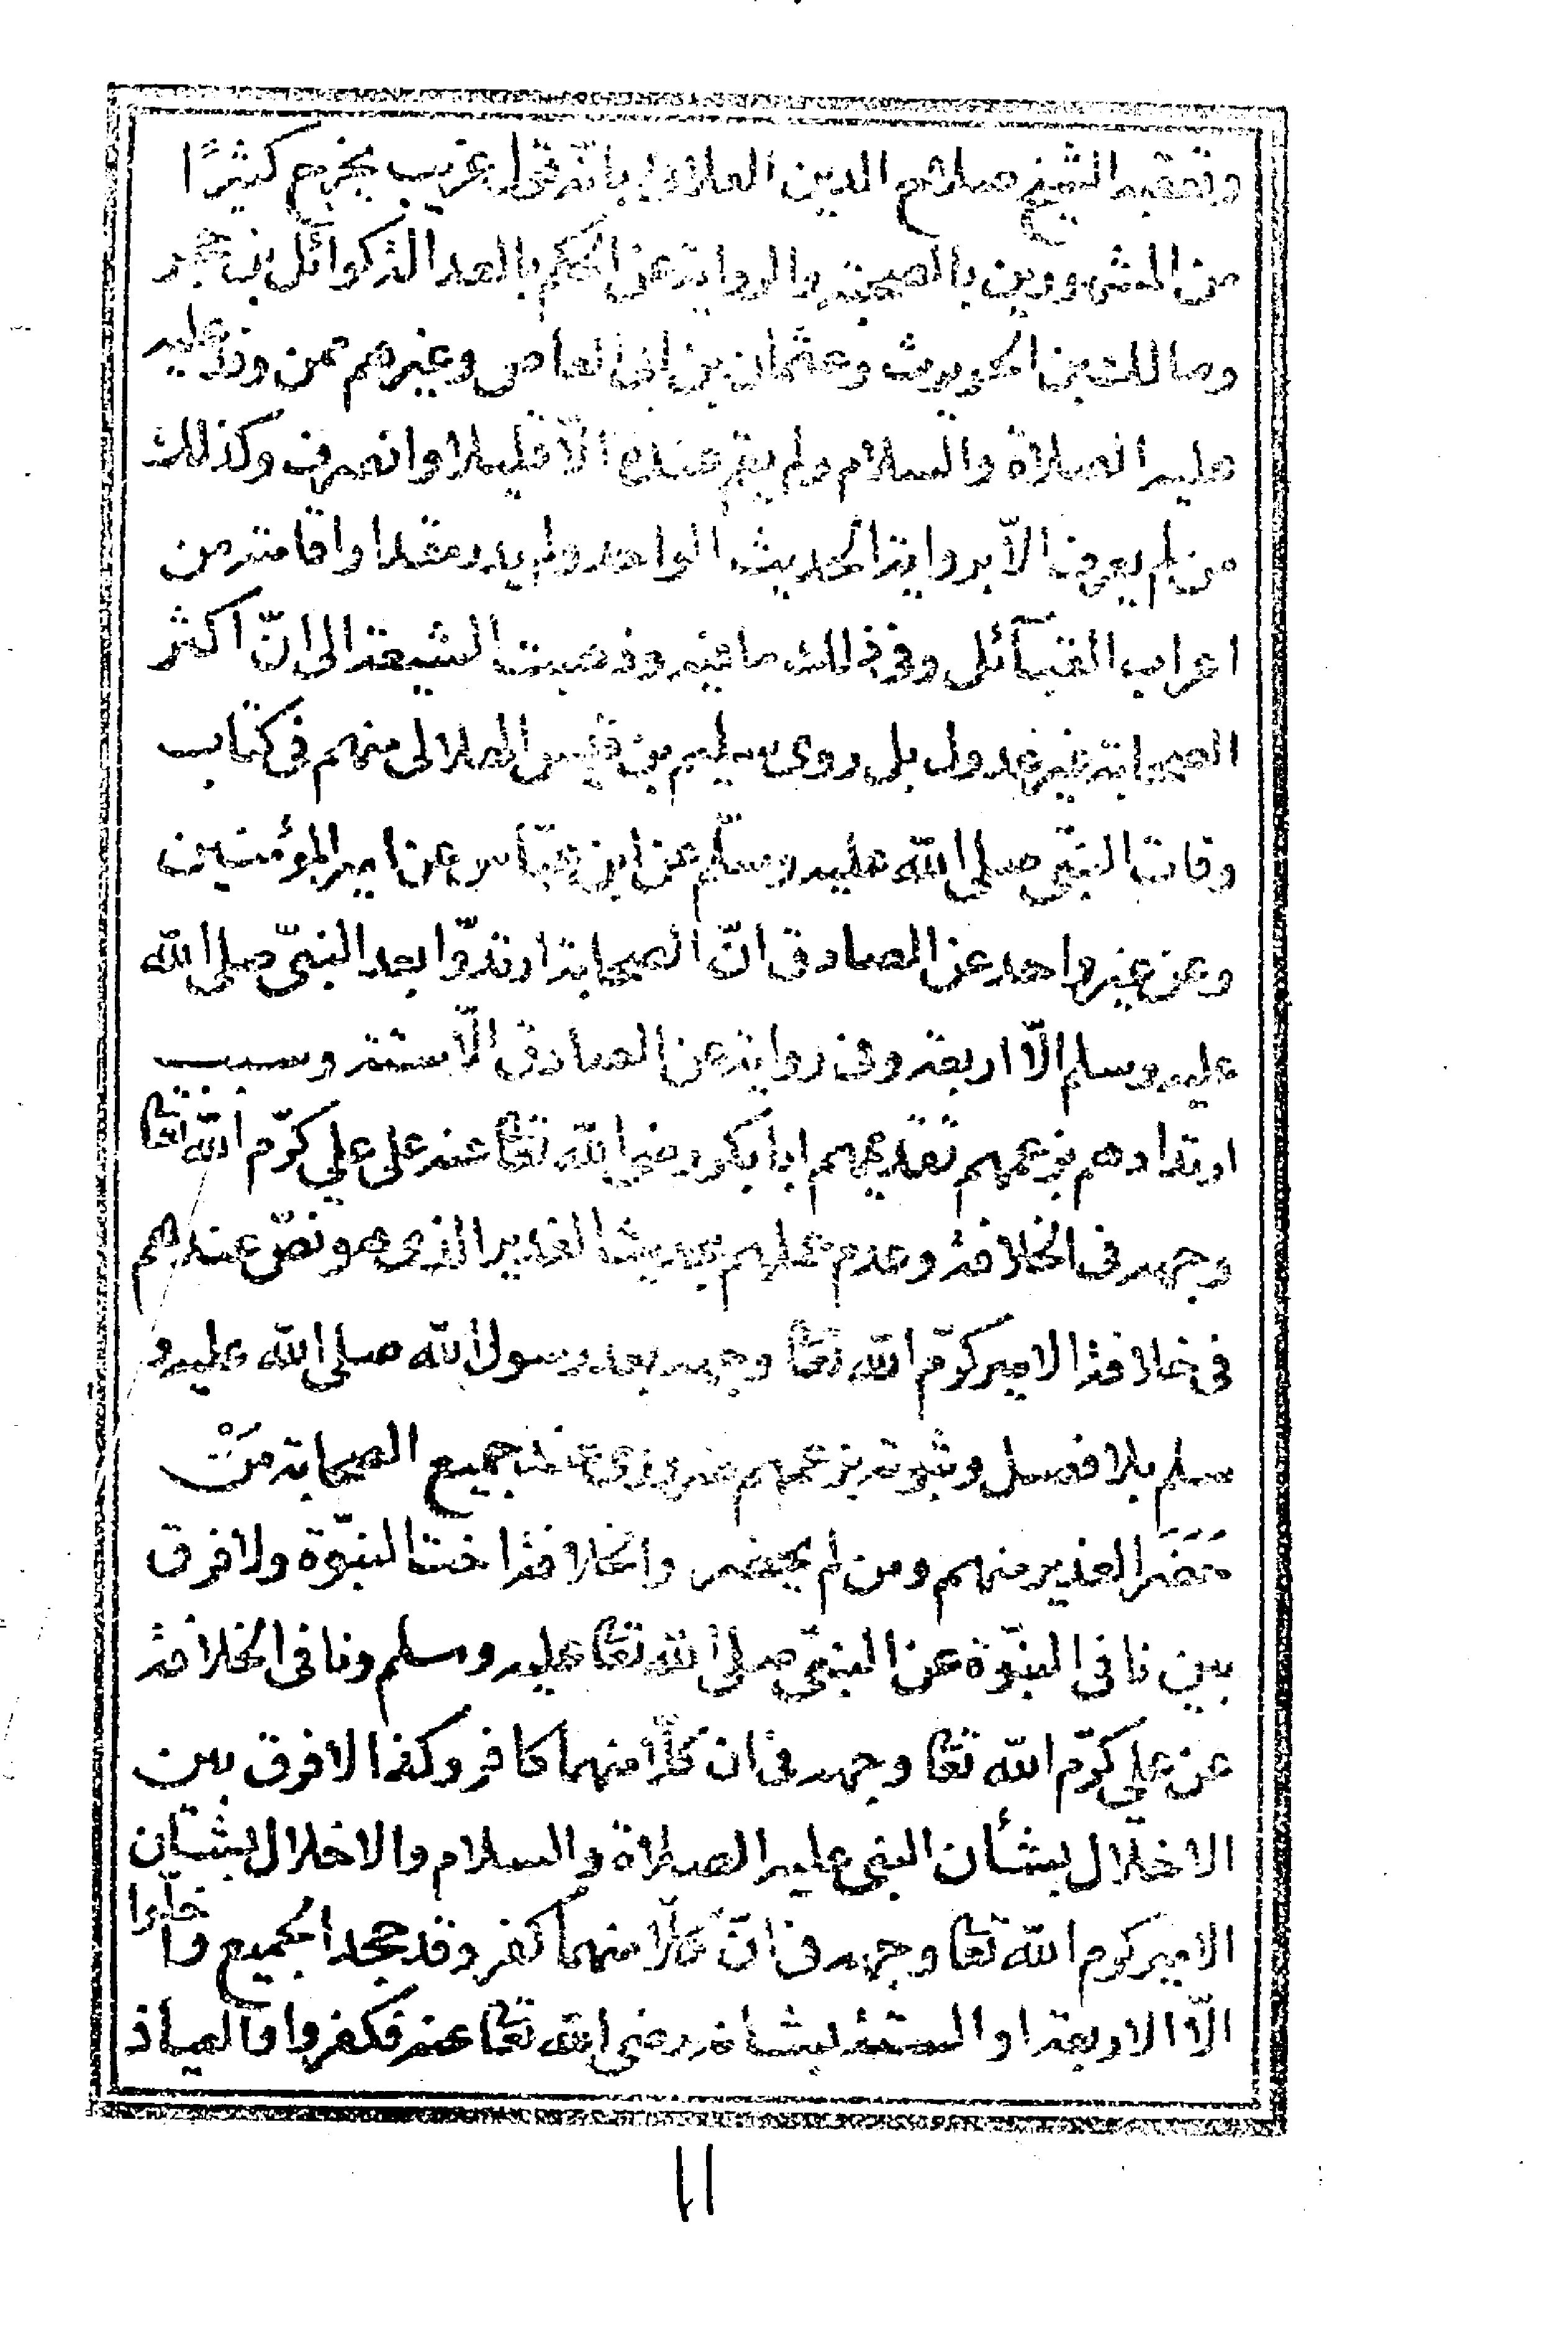 وتعقبه الشيخ صلاح الدين العلائى بانّه قول غريب يخرج كثيرًا
من المشهورين بالصحبة والرواية عن الحكم بالعدالة كوائل بن حجر
ومالك بن الحويرث وعثمان بن ابى العاص وغيرهم ممن وفد عليه
عليه الصلاة والسلام ولم يقم عنده الّا قليلا وانصرف وكذلك
من لم يعرف الّا برواية الحديث الواحد ولم يدر مقدار اقامته من
اعراب القبآئل وفى ذلك ما فيه وذهبت الشيعة الى انّ اكثر
الصحابة غير عدول بل روى سليم بن قيس الهلالى منهم فى كتاب
وفات النبّى صلى الله عليه وسلّم عن ابن عبّاس عن امير المؤمنين
وعن غير واحد عن الصادق انّ الصحابة ارتدّوا بعد النبىّ صلى الله
عليه وسلم الّا اربعة وفى رواية عن الصادق الّا ستة وسبب
ارتدادهم بزعمهم تقديمهم ابا بكر رضى الله تعا عنه على علي كرّم الله تعا
وجهه فى الخلافة وعدم عملهم بحديث الغدير الذى هو نصّ عندهم
فى خلافة الامير كرّم الله تعا وجهه بعد رسول الله صلى الله عليه و
سلم بلا فصل وثبوته بزعمهم ضرورى عند جميع الصحابة مَنْ
حَضَرَ الغدير منهم ومن لم يحضر والخلافة اخت النبّوة ولا فرق
بين نافى النبّوة عن النبّى صلى الله تعا عليه وسلم ونافى الخلافة
عن علي كرّم الله تعا وجهه فى ان كلّا منهما كافر وكذا لا فرق بين
الاخلال بشأن النبى عليه الصلاة والسلام والاخلال بشان
الامير كرم الله تعا وجهه فى انّ كلّا منهما كفر وقد جحد الجميع واخلّوا
الّا الاربعة او الستة بشانه رضى الله تعا عنه فكفروا والعياذ
١١